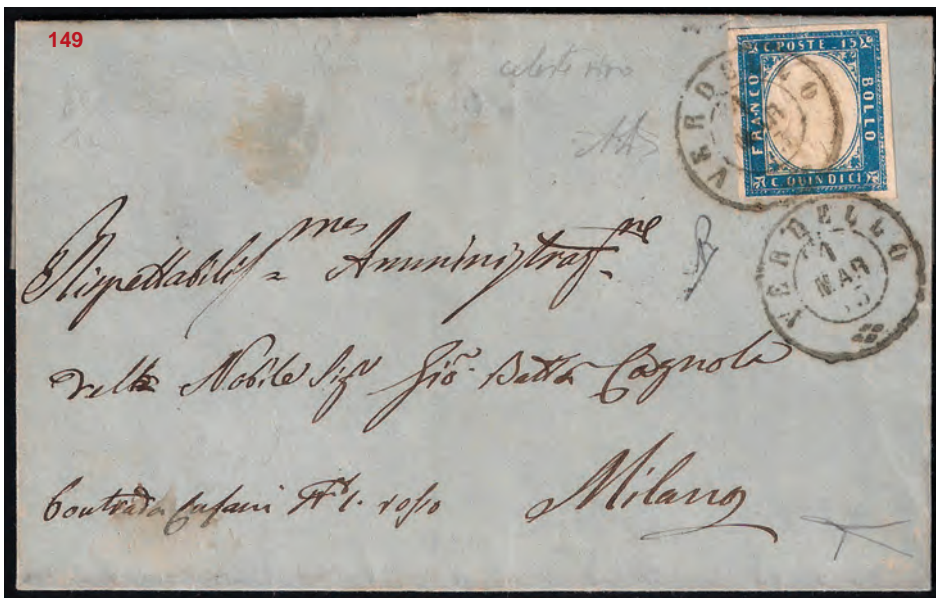 149
celeste vivo
C. POSTE 15
FRANCO
BOLLO
C. QUINDICI
VERDELLO
MAR
VERDELLO
1
MAR
Rispettabiliss=mes Amministraz=ne
Nobile Sigr Gio. Batta Cagnola
Contrada rosso Milano